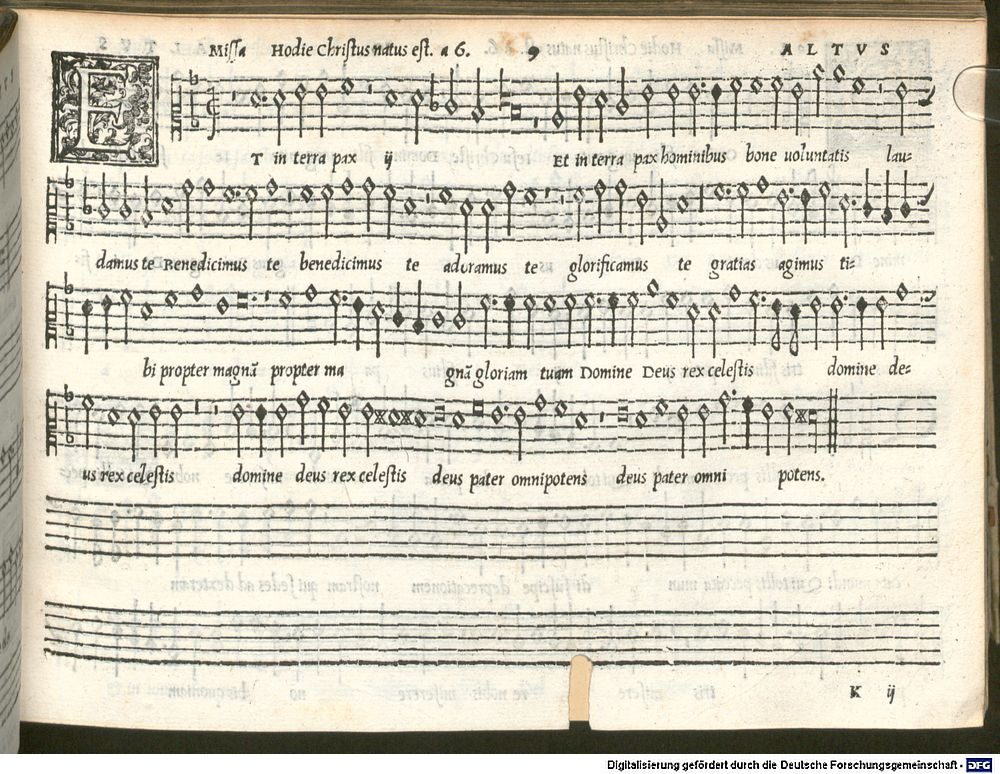 Missa Hodie Christus natus est. a 6. 9 ALTVS
ET in terra pax ij Et in terra pax hominibus bone uoluntatis lau-
damus te Benedicimus te benedicimus te adoramus te glorificamus te gratias agimus ti-
bi propter magnã propter ma gnã gloriam tuam Domine Deus rex celestis domine de-
us rex celestis domine deus rex celestis deus pater omnipotens deus pater omni potens.
K ij
Digitalisierung gefördert durch die Deutsche Forschungsgemeinschaft - DFG